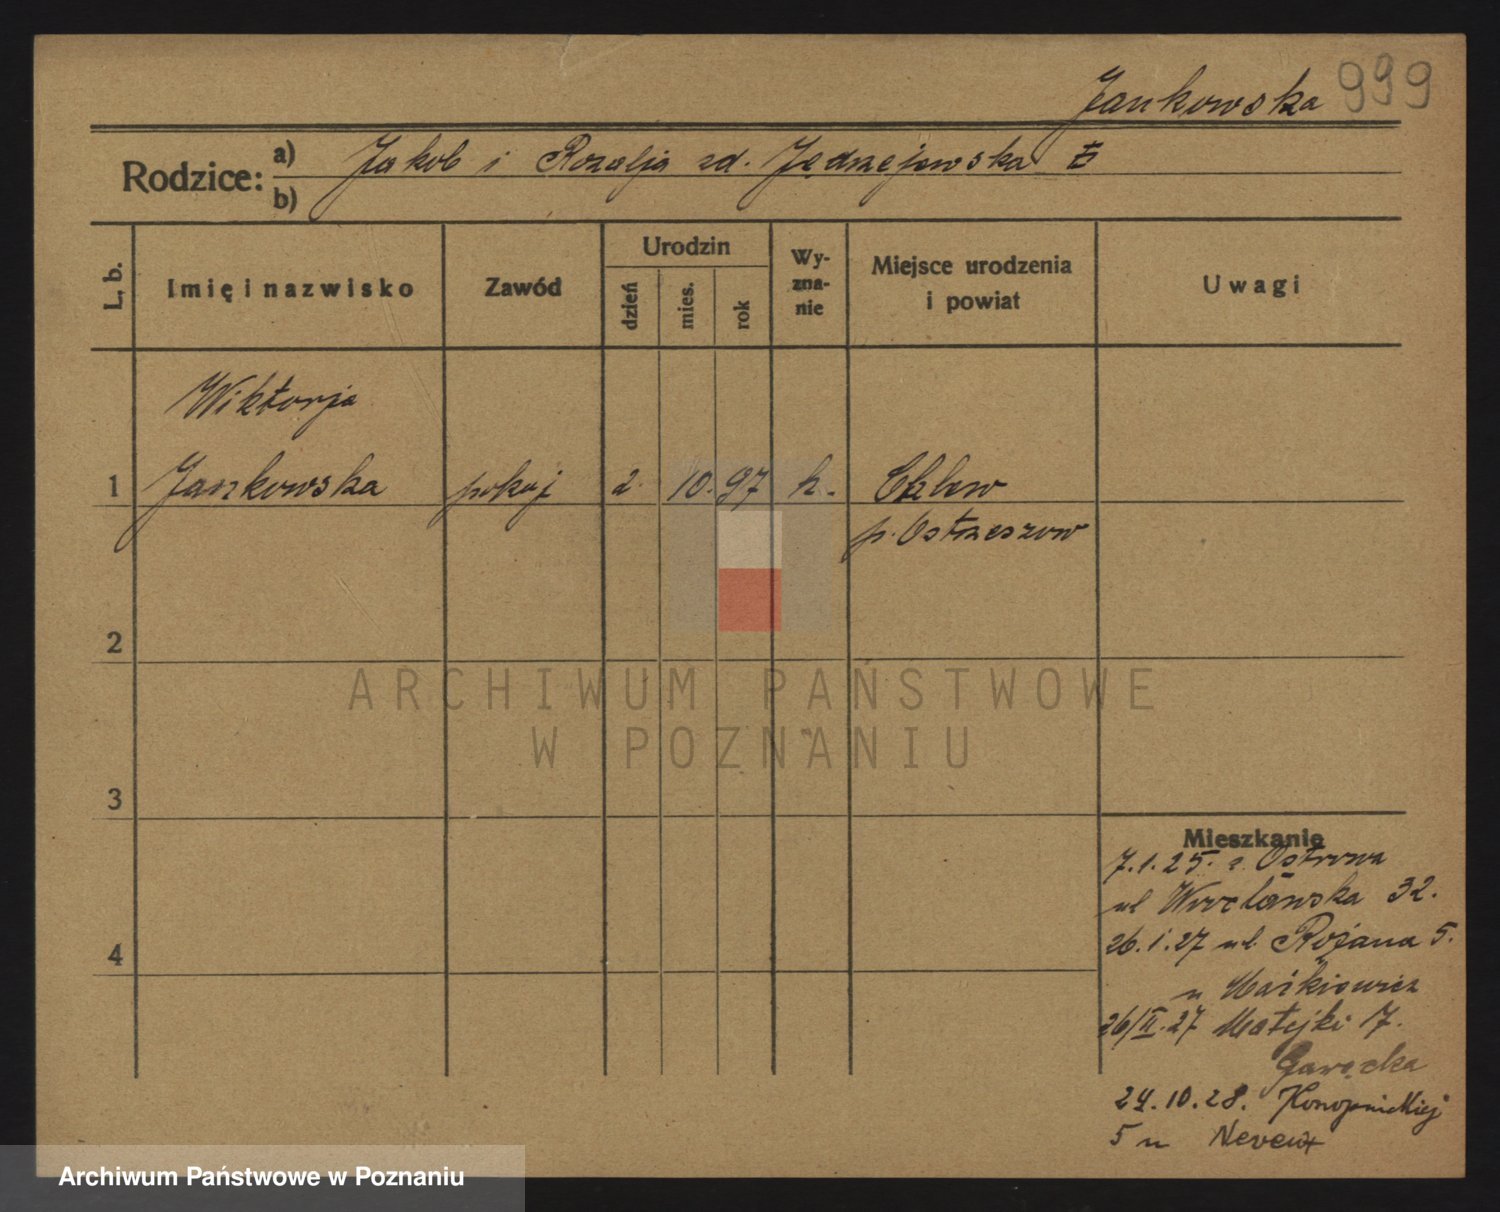 Jankowska 999
Rodzice: a) Jakob i Rozalja zd. Jędrzejewska
b)
L. b.
Imię i nazwisko
Zawód
Urodzin
dzień
mies.
rok
Wy-
zna-
nie
Miejsce urodzenia
i powiat
Uwagi
Wiktorja
1 Jankowska pokoj 2. 10. 97 k.
p. Ostrzeszow
2
3
4
ARCHIWUM PAŃSTWOWE
W POZNANIU
Mieszkanie
7.1.25. z Ostrowa
ul Wrocławska 32.
26.1.27 ul. Różana 5.
u Maśkiewicz
26/II.27 Matejki 17.
Gawęcka
24.10.28. Konopnickiej
5 u
Archiwum Państwowe w Poznaniu